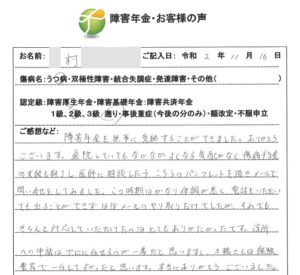 障害年金・お客様の声
お名前: 村 ご記入日: 令和 2年 11月 16日
傷病名: うつ病・双極性障害・統合失調症・発達障害・その他( )
認定級: 障害厚生年金・障害基礎年金・障害共済年金
1級、2級、3級、遡り・事後重症(今後の分のみ)・額改定・不服申立
ご感想など:
障害年金を無事に受給することができました。ありがとう
ございます。通院していてもなかなかよくなる気配がなく傷病手当金
の支給も終わり医師に相談したらこちらのパンフレットを頂きメールで
問い合せをしてみました。この時期はかなり体調が悪く、電話をいただいて
も出ることができずほぼメールのやり取りだけでしたが、それでも
きちんと対応していただけたのはとてもありがたかったです。役所
への申請はプロに任せるのが一番だと思いますし、土橋さんは経験
豊富で一任してよかったと思います。本当にありがとうございました。